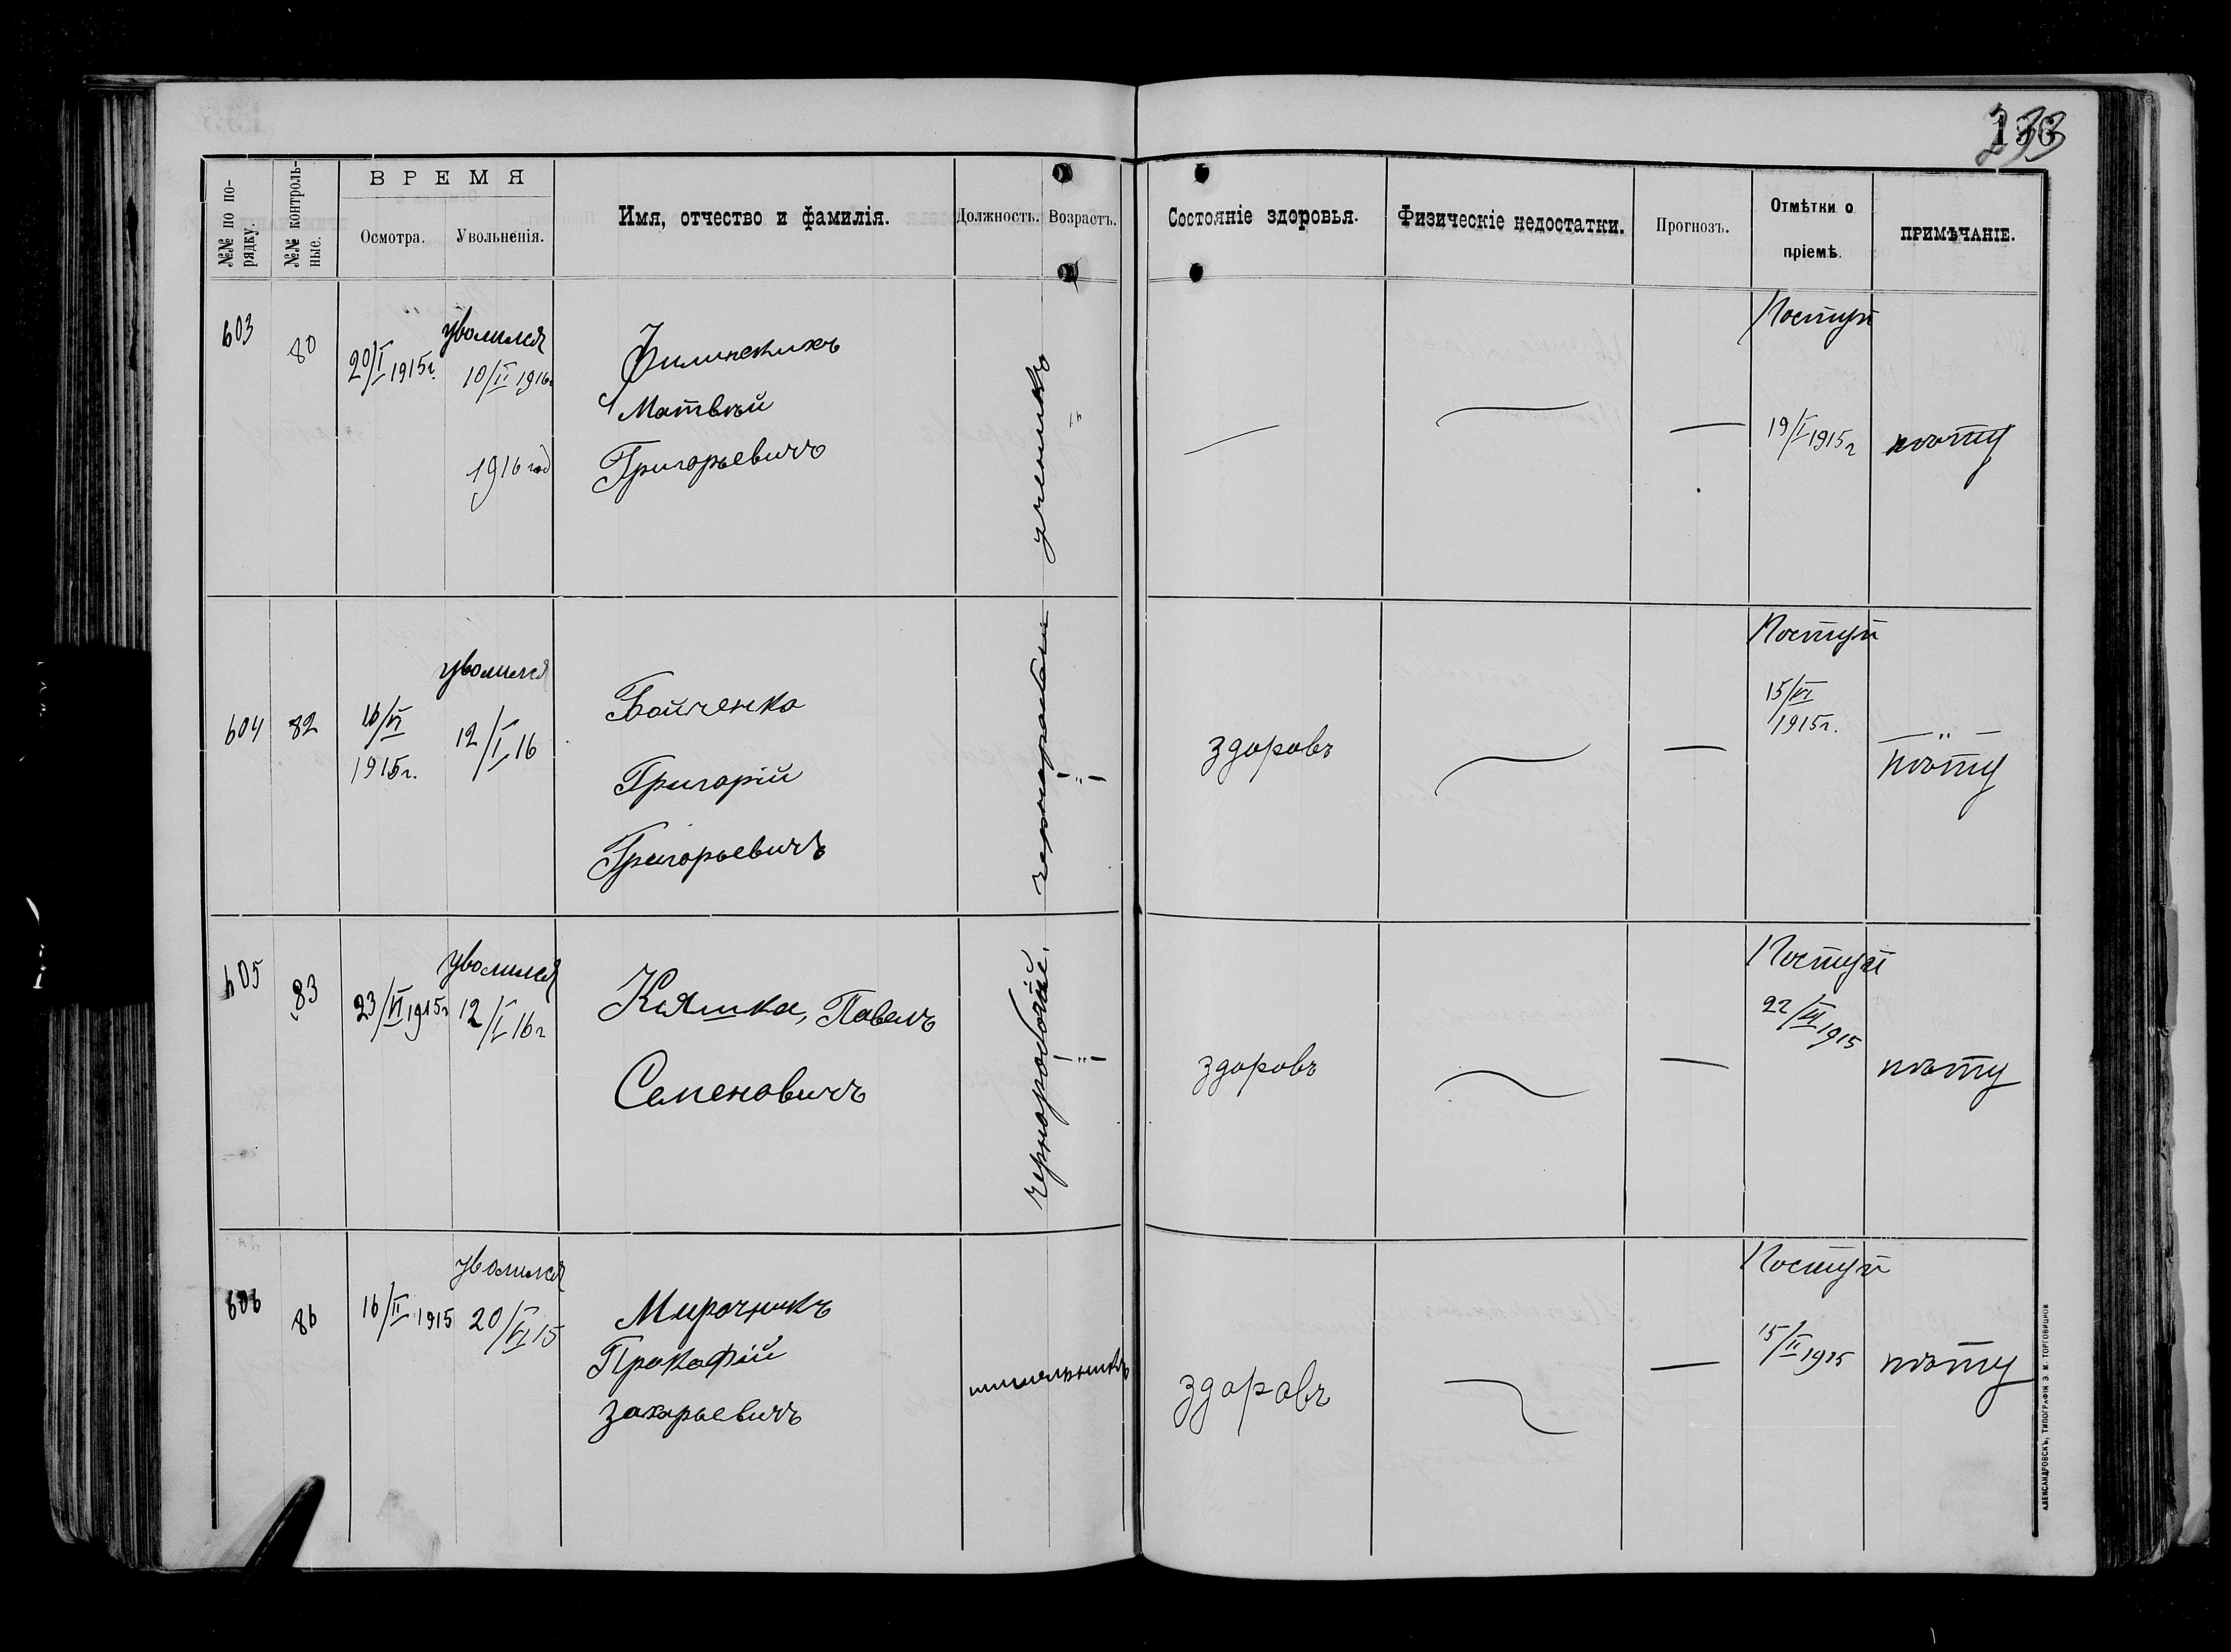 133
№№ по по-
рядку.
№№ контроль-
ные.
ВРЕМЯ
Осмотра.
Увольненія.
Имя, отчество и фамилія.
Должность.
Возрастъ.
Состояніе здоровья.
Физическіе недостатки.
Прогнозъ.
Отмѣтки о
пріемѣ.
ПРИМѢЧАНІЕ.
603
80
20/I 1915г.
уволился
10/II 1916г
1916 год
Филинскихъ
Матвѣй
Григорьевичъ
ученикъ
—
—
Поступ
19/I 1915г
604
82
16/VI
1915г.
уволился
12/I 16
Бойченко
Григорій
Григорьевичъ
чернорабоч
— " —
здоровъ
—
Поступ
15/VI
1915г.
— " —
605
83
23/VI 1915г
уволился
12/I 16г
Кияшка, Павелъ
Семеновичъ
чернорабочій.
— " —
здоровъ
—
Поступ
22/VI 1915
606
86
16/II 1915
уволился
20/VI 15
Мирочникъ
Прокофій
Захарьевичъ
здоровъ
—
Поступ
15/II 1915
АЛЕКСАНДРОВСКЪ, ТИПОГРАФІЯ Э. М. ТОРГОВИЦКОЙ